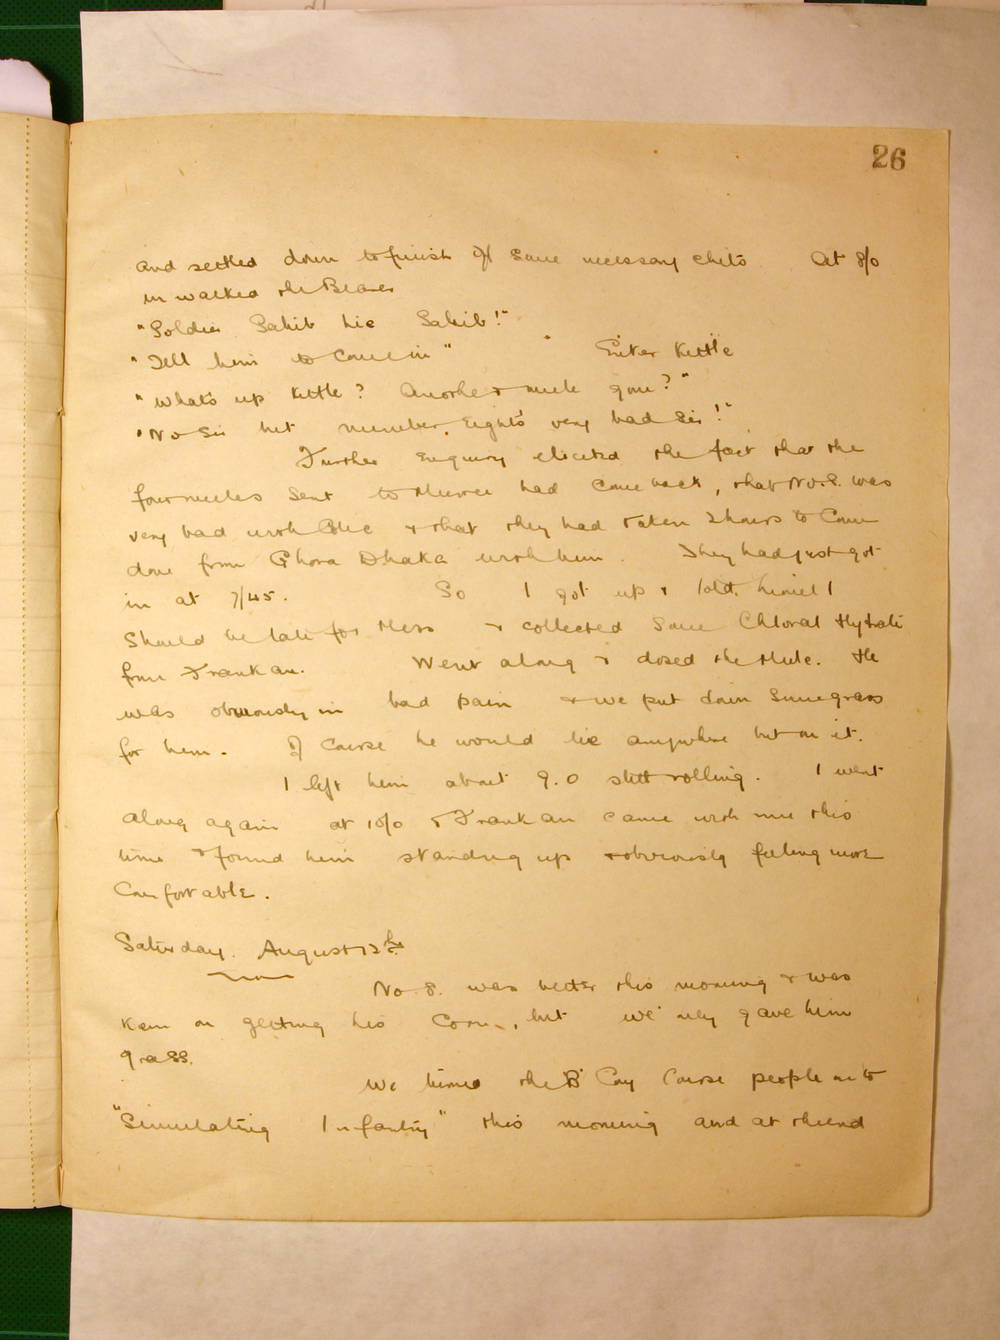 26
and settled down to finish off some necessary chits. At 8/0
in walked the Bearer
"Soldier Sahib hie Sahib!"
"Tell him to come in" Enter Kettle
"What's up Kettle? Another mule gone?"
"No Sir but number Eight's very bad Sir!"
Further enquiry elicited the fact that the
four mules sent to Murree had come back, that No. 8. was
very bad with Colic & that they had taken 2 hours to come
down from Ghora Dhaka with him. They had just got
in at 7/45. So I got up & told I
should be late for Mess & collected some Chloral Hydrate
from Frankau. Went along & dosed the Mule. He
was obviously in bad pain & we put down some grass
for him. Of course he would lie anywhere but on it.
I left him about 9.0 still rolling. I went
along again at 10/0 & Frankau came with me this
time & found him standing up & obviously feeling more
comfortable.
Saturday. August 13th.
No. 8. was better this morning & was
keen on getting his Corn, but we only gave him
grass.
We turned the B Coy Course people on to
"Simulating Infantry" this morning and at the end